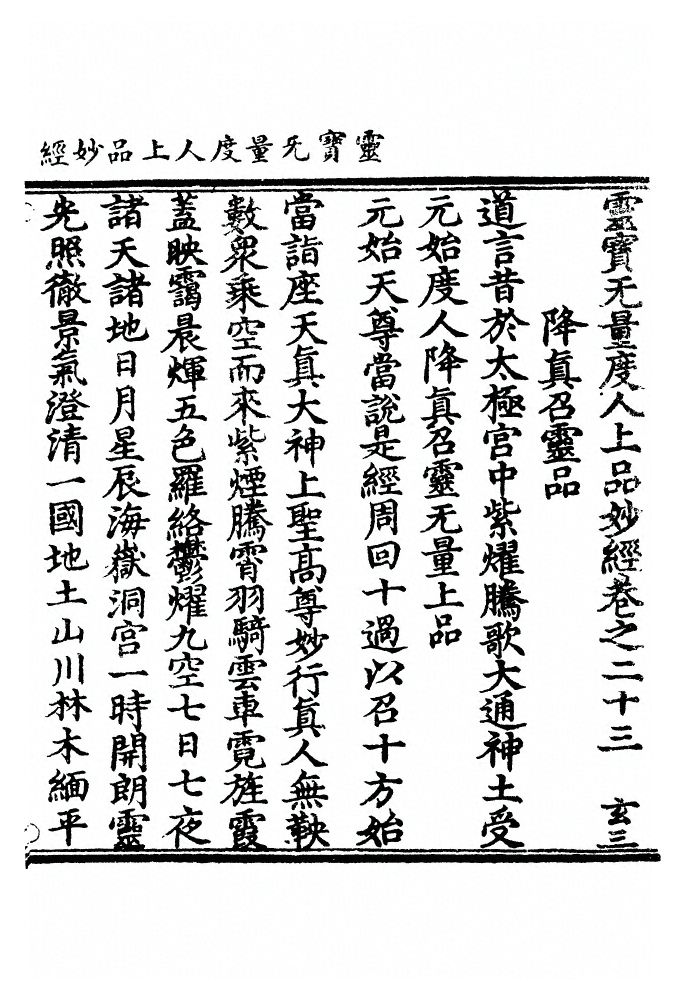 靈寶旡量度人上品妙經
靈寶旡量度人上品妙經卷之二十三 玄三
降眞召靈品
道言昔於太極宮中紫燿騰歌大通神土受
元始度人降眞召靈旡量上品
元始天尊當說是經周回十過以召十方始
當詣座天眞大神上聖高尊妙行眞人無鞅
數衆乘空而來紫煙騰霄羽騎雲車霓旌霞
蓋映靄晨煇五色羅絡鬱燿九空七日七夜
諸天諸地日月星辰海嶽洞宮一時開朗靈
光照徹景氣澄清一國地土山川林木緬平